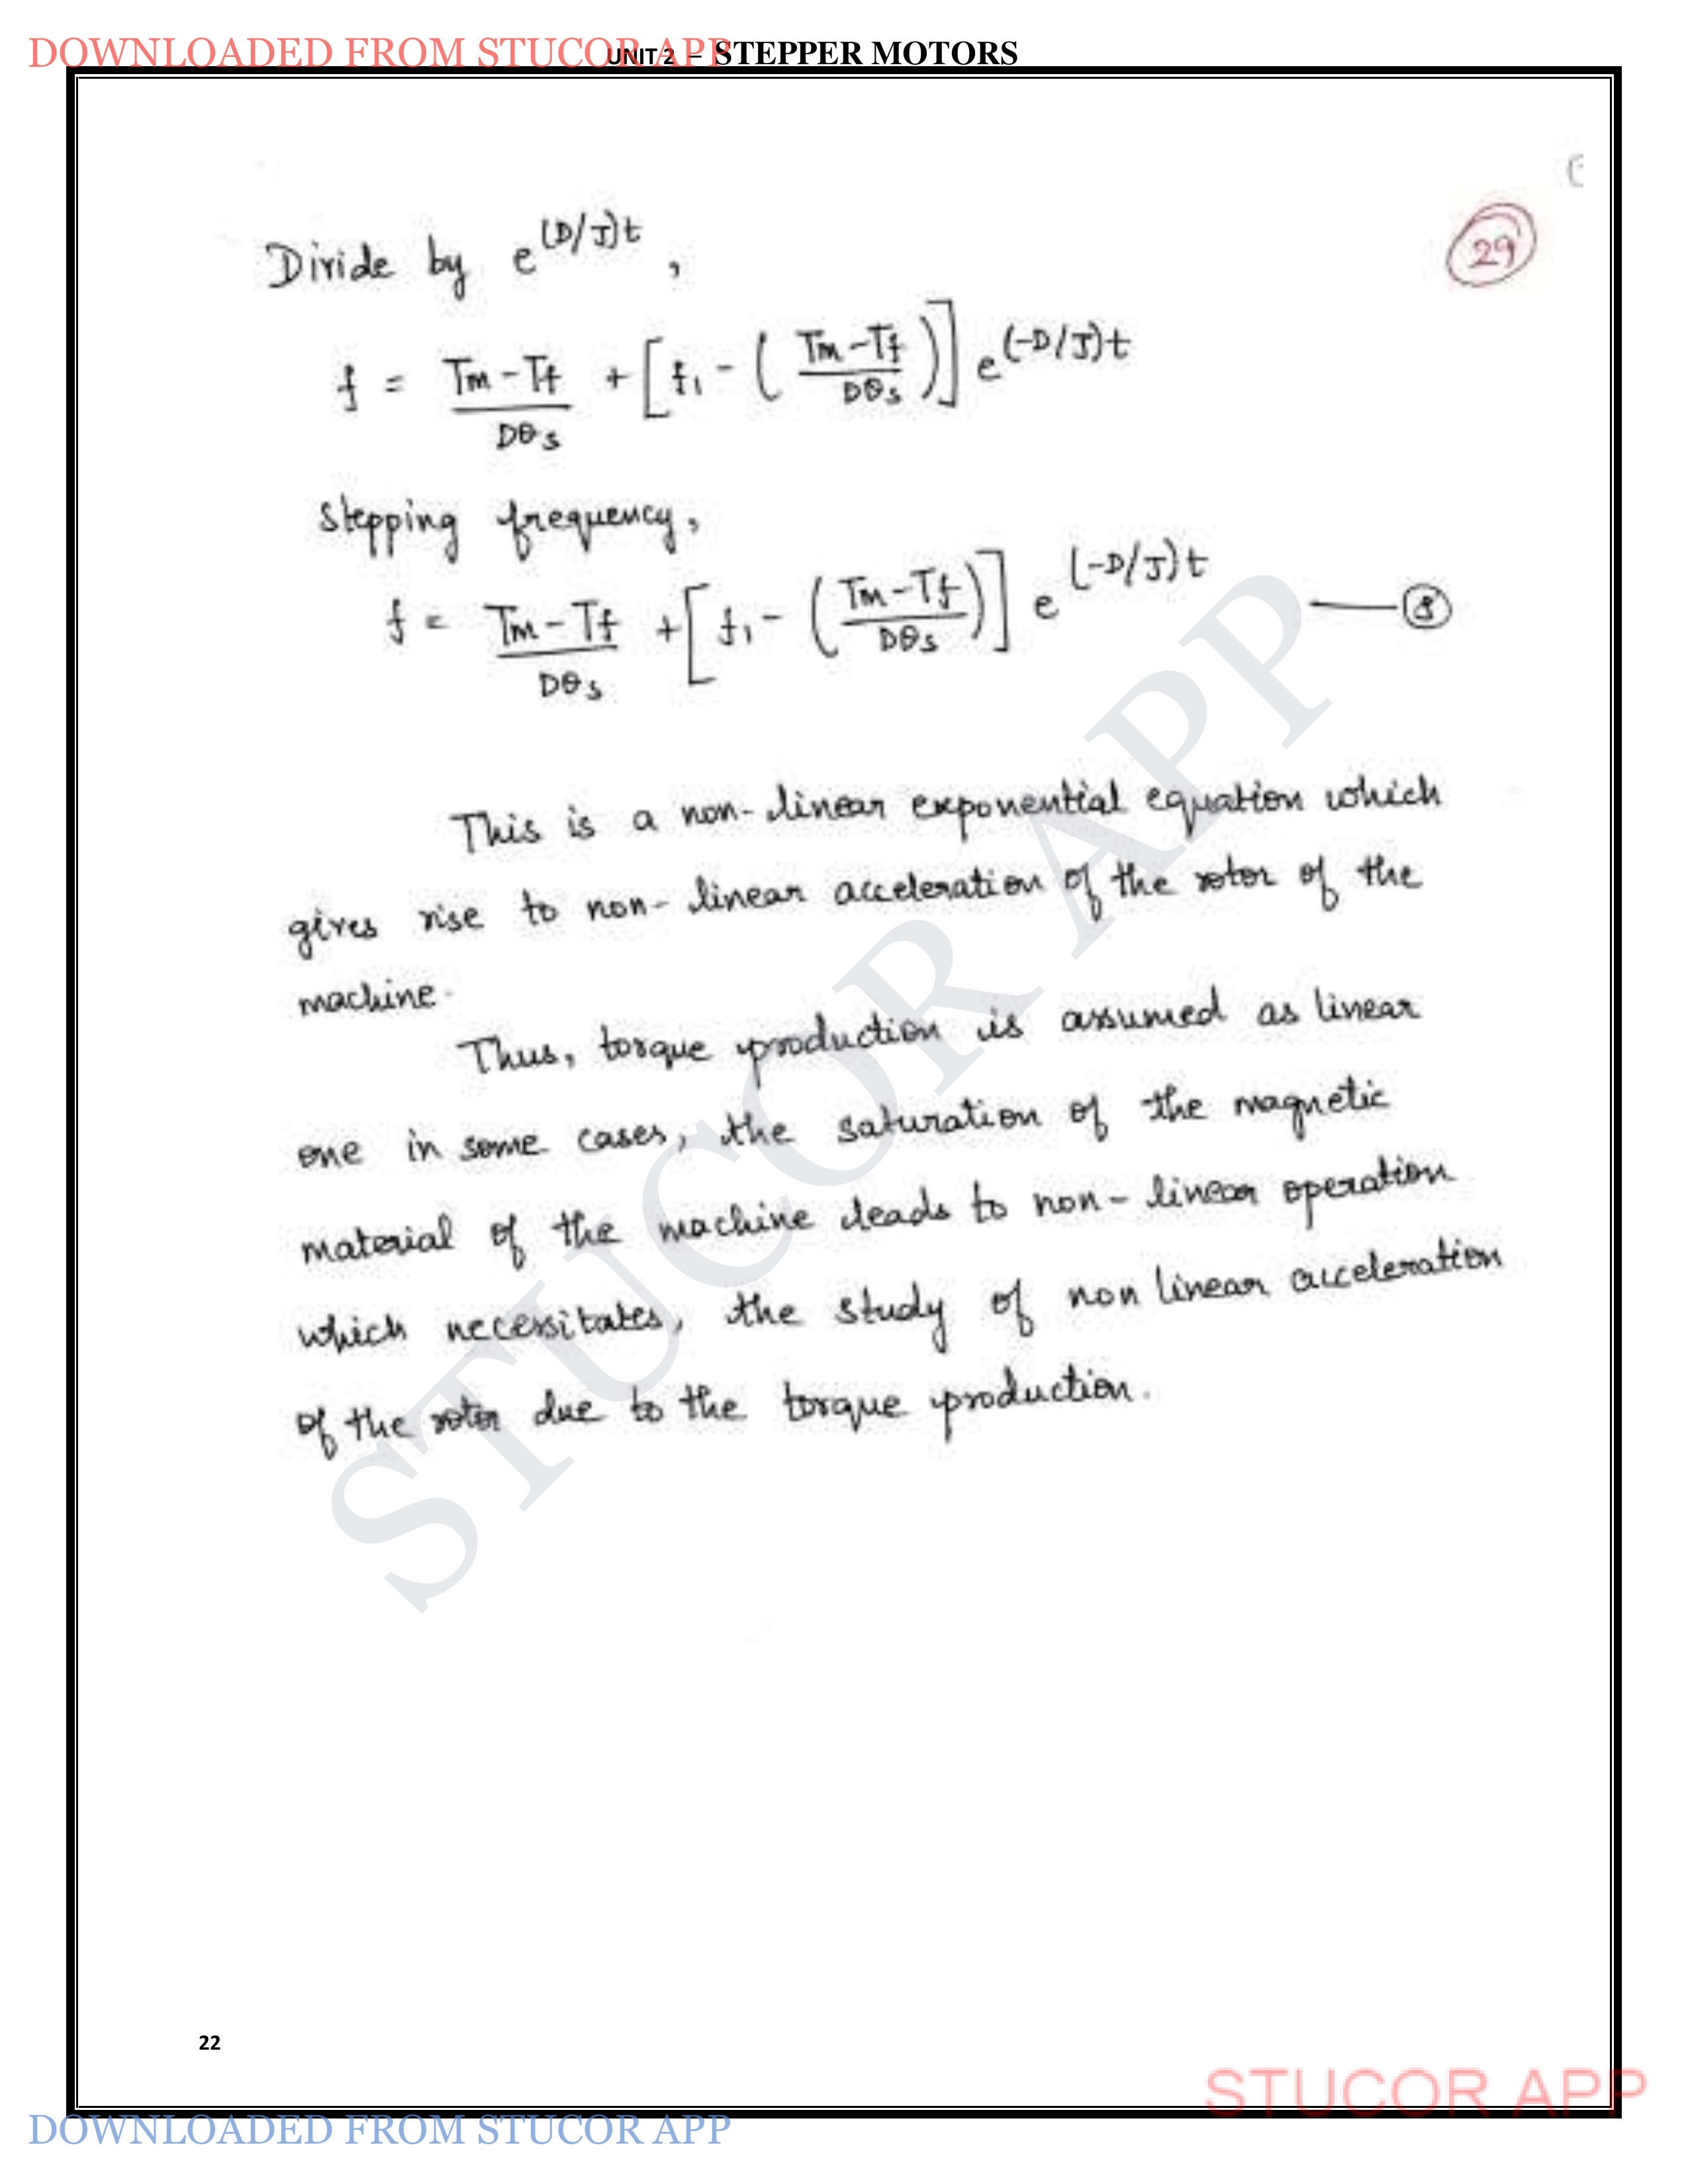 DOWNLOADED FROM STUCOR APP
UNIT 2 – STEPPER MOTORS
29
Divide by e^(D/J)t,
f = Tm-Tf/Dθs + [f1 - (Tm-Tf/Dθs)] e^(-D/J)t
Stepping frequency,
f = Tm-Tf/Dθs + [f1 - (Tm-Tf/Dθs)] e^(-D/J)t — 8
This is a non-linear exponential equation which
gives rise to non-linear acceleration of the rotor of the
machine.
Thus, torque production is assumed as linear
one in some cases, the saturation of the magnetic
material of the machine leads to non-linear operation
which necessitates, the study of non linear acceleration
of the rotor due to the torque production.
STUCOR APP
22
STUCOR APP
DOWNLOADED FROM STUCOR APP